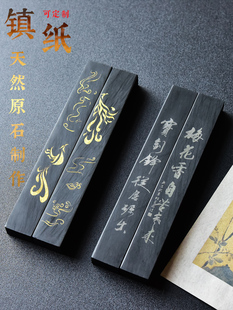 镇纸
可定制
天然原石制作
梅花香自苦寒来
宝剑锋从磨砺出